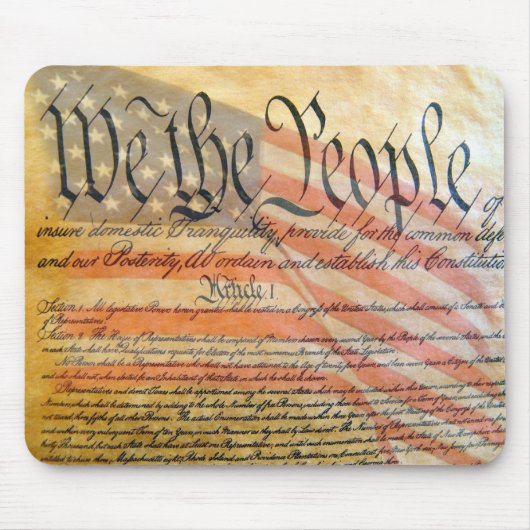 We the People of
insure domestic Tranquility, provide for the common defe
and our Posterity, do ordain and establish this Constitution
Article. I.
Section. 1. All legislative Powers herein granted shall be vested in a Congress of the United States, which shall consist of a Senate and
of Representatives.
Section. 2. The House of Representatives shall be composed of Members chosen every second Year by the People of the several States, and the
in each State shall have the Qualifications requisite for Electors of the most numerous Branch of the State Legislature.
No Person shall be a Representative who shall not have attained to the Age of twenty five Years, and been seven Years a Citizen of the United
and who shall not, when elected, be an Inhabitant of that State in which he shall be chosen.
Representatives and direct Taxes shall be apportioned among the several States which may be included within this Union, according to their
Numbers, which shall be determined by adding to the whole Number of free Persons, including those bound to Service for a Term of Years, and excluding
not taxed, three fifths of all other Persons. The actual Enumeration shall be made within three Years after the first Meeting of the Congress of the United
and within every subsequent Term of ten Years, in such Manner as they shall by Law direct. The Number of Representatives shall not exceed one for every
thirty Thousand, but each State shall have at Least one Representative; and until such enumeration shall be made, the State of New Hampshire shall be
entitled to chuse three, Massachusetts eight, Rhode Island and Providence Plantations one, Connecticut five, New York six, New Jersey four